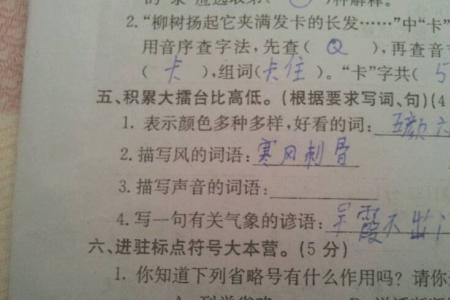 的“柔”应选取第( )种解释。
2.“柳树扬起它夹满发卡的长发……”中“卡”
用音序查字法,先查( Q ),再查音节
( 卡 ),组词(卡住)。“卡”字共( 5
五、积累大擂台比高低。(根据要求写词、句)(4
1. 表示颜色多种多样,好看的词: 五颜六
2. 描写风的词语: 寒风刺骨
3. 描写声音的词语:
4. 写一句有关气象的谚语: 早霞不出门
六、进驻标点符号大本营。(5 分)
1. 你知道下列省略号有什么作用吗? 请你